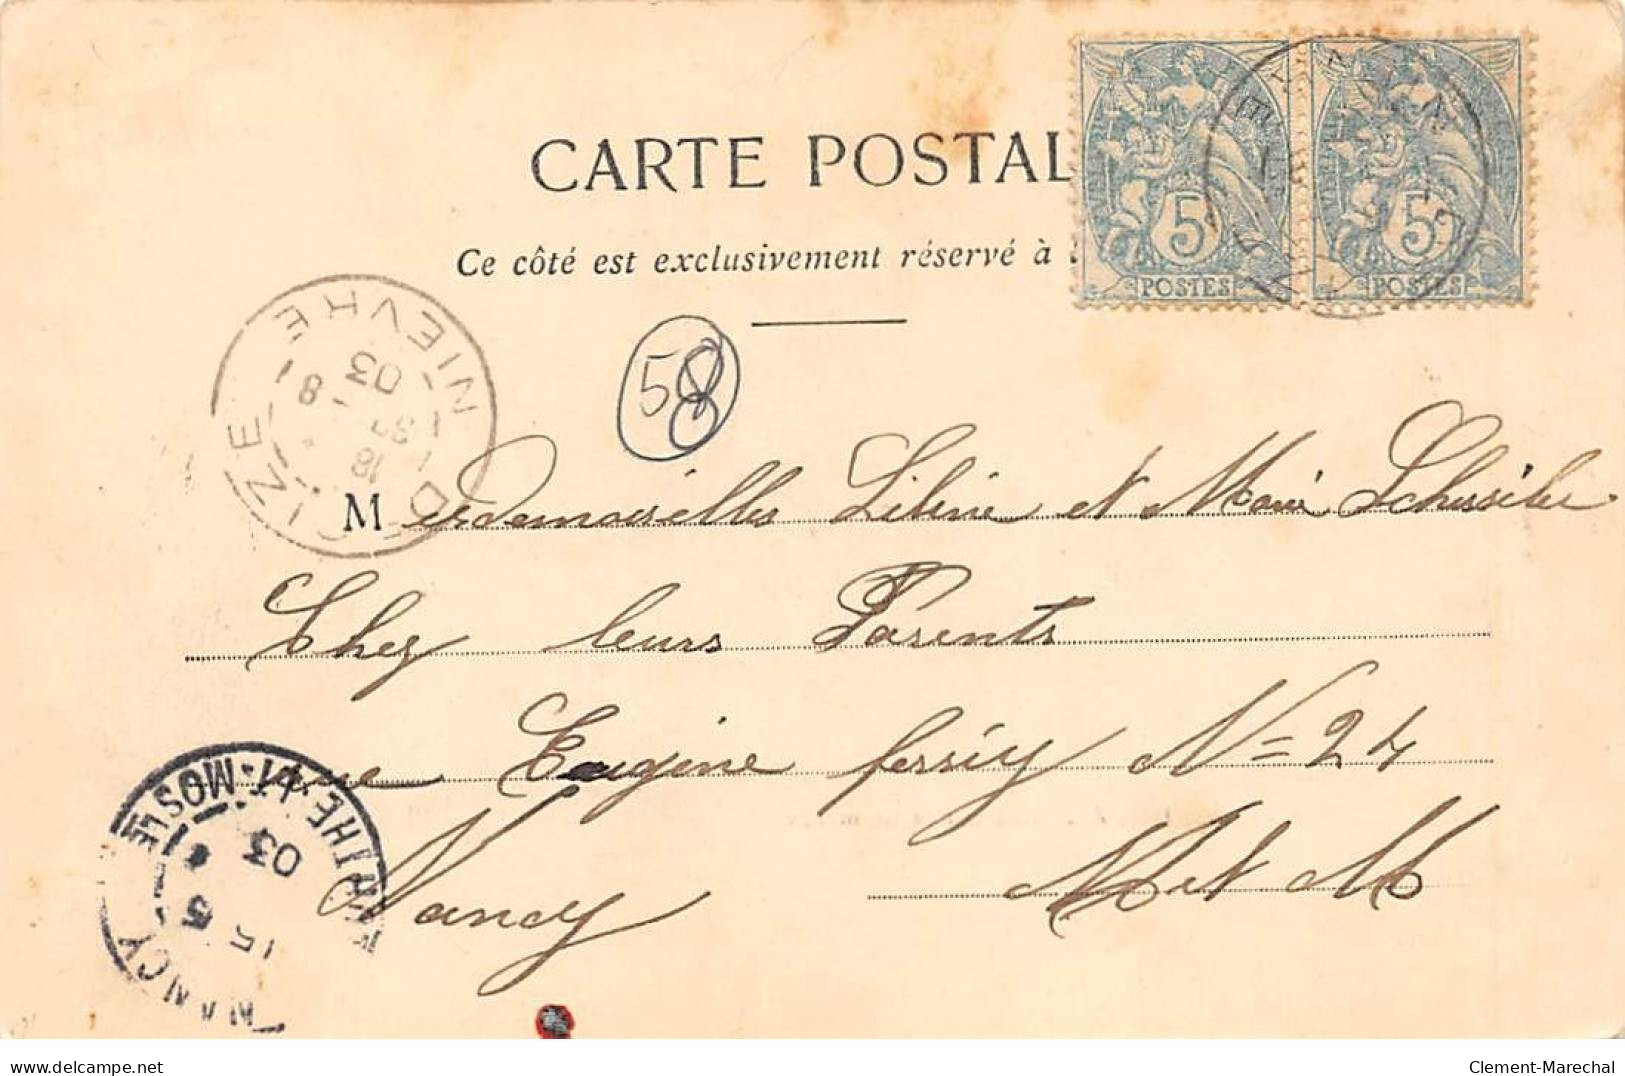 CARTE POSTAL
Ce côté est exclusivement réservé à
5 POSTES
5 POSTES
58
NIEVRE
DECIZE
18
03
8
Mesdemoiselles et Marie
Chez leurs Parents
rue Eugène ferry N=24
Nancy M et M
NANCY MEURTHE-ET-MOSELLE
15
5
03
delcampe.net
Clement-Marechal